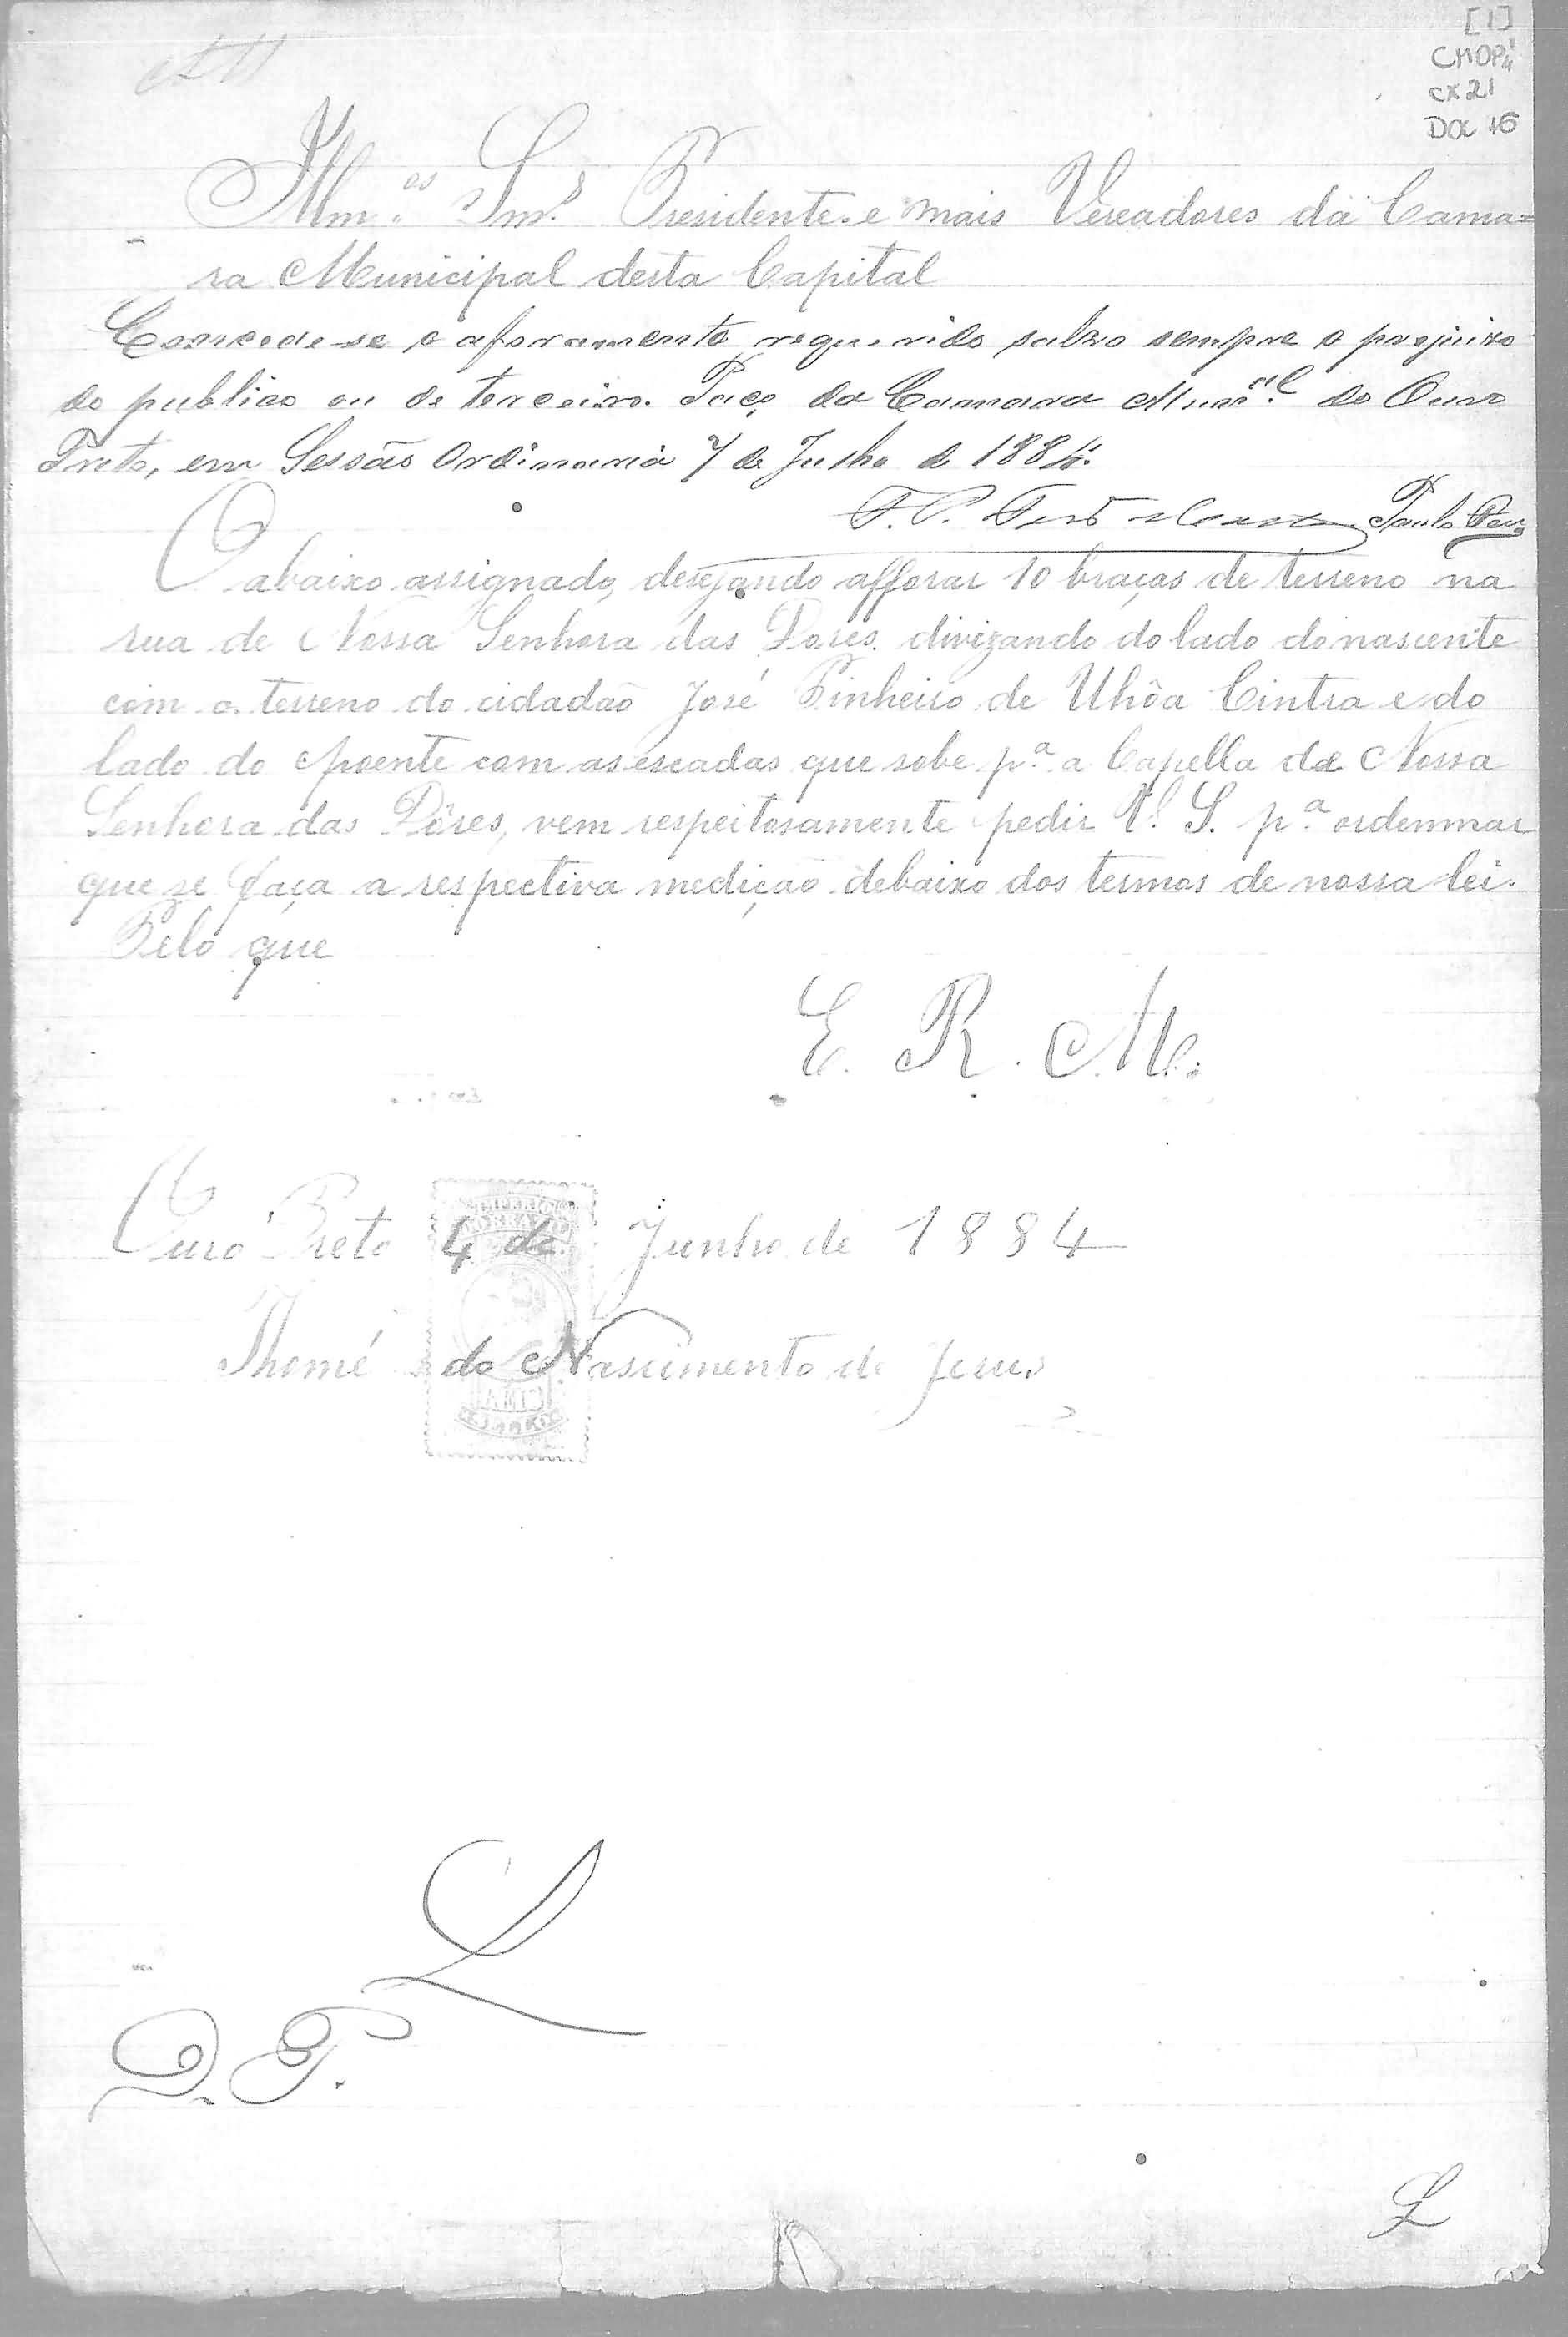 [1]
CMOP
CX 21
DOC 16
Illm.os Snr.s Presidente e mais Vereadores da Cama=
ra Municipal desta Capital
Concede-se o aforamento requerido salvo sempre o prejuizo
do publico ou de terceiro. Paço da Camara Munic.al do Ouro
Preto, em Sessão Ordinaria 7 de Julho de 1884.
Paulo
O abaixo assignado, desejando afforar 10 braças de terreno na
rua de Nossa Senhora das Dores. divizando do lado do nascente
com o terreno do cidadão José Pinheiro de Uhôa Cintra e do
lado do poente com as escadas que sobe p.a a Capella de Nossa
Senhora das Dôres, vem respeitosamente pedir V. S. p.a ordenmar
que se faça a respectiva medição debaixo dos termos de nossa lei.
Pelo que
E. R. M.
Ouro Preto 4 de Junho de 1884
Thomé do Nascimento de Jesus